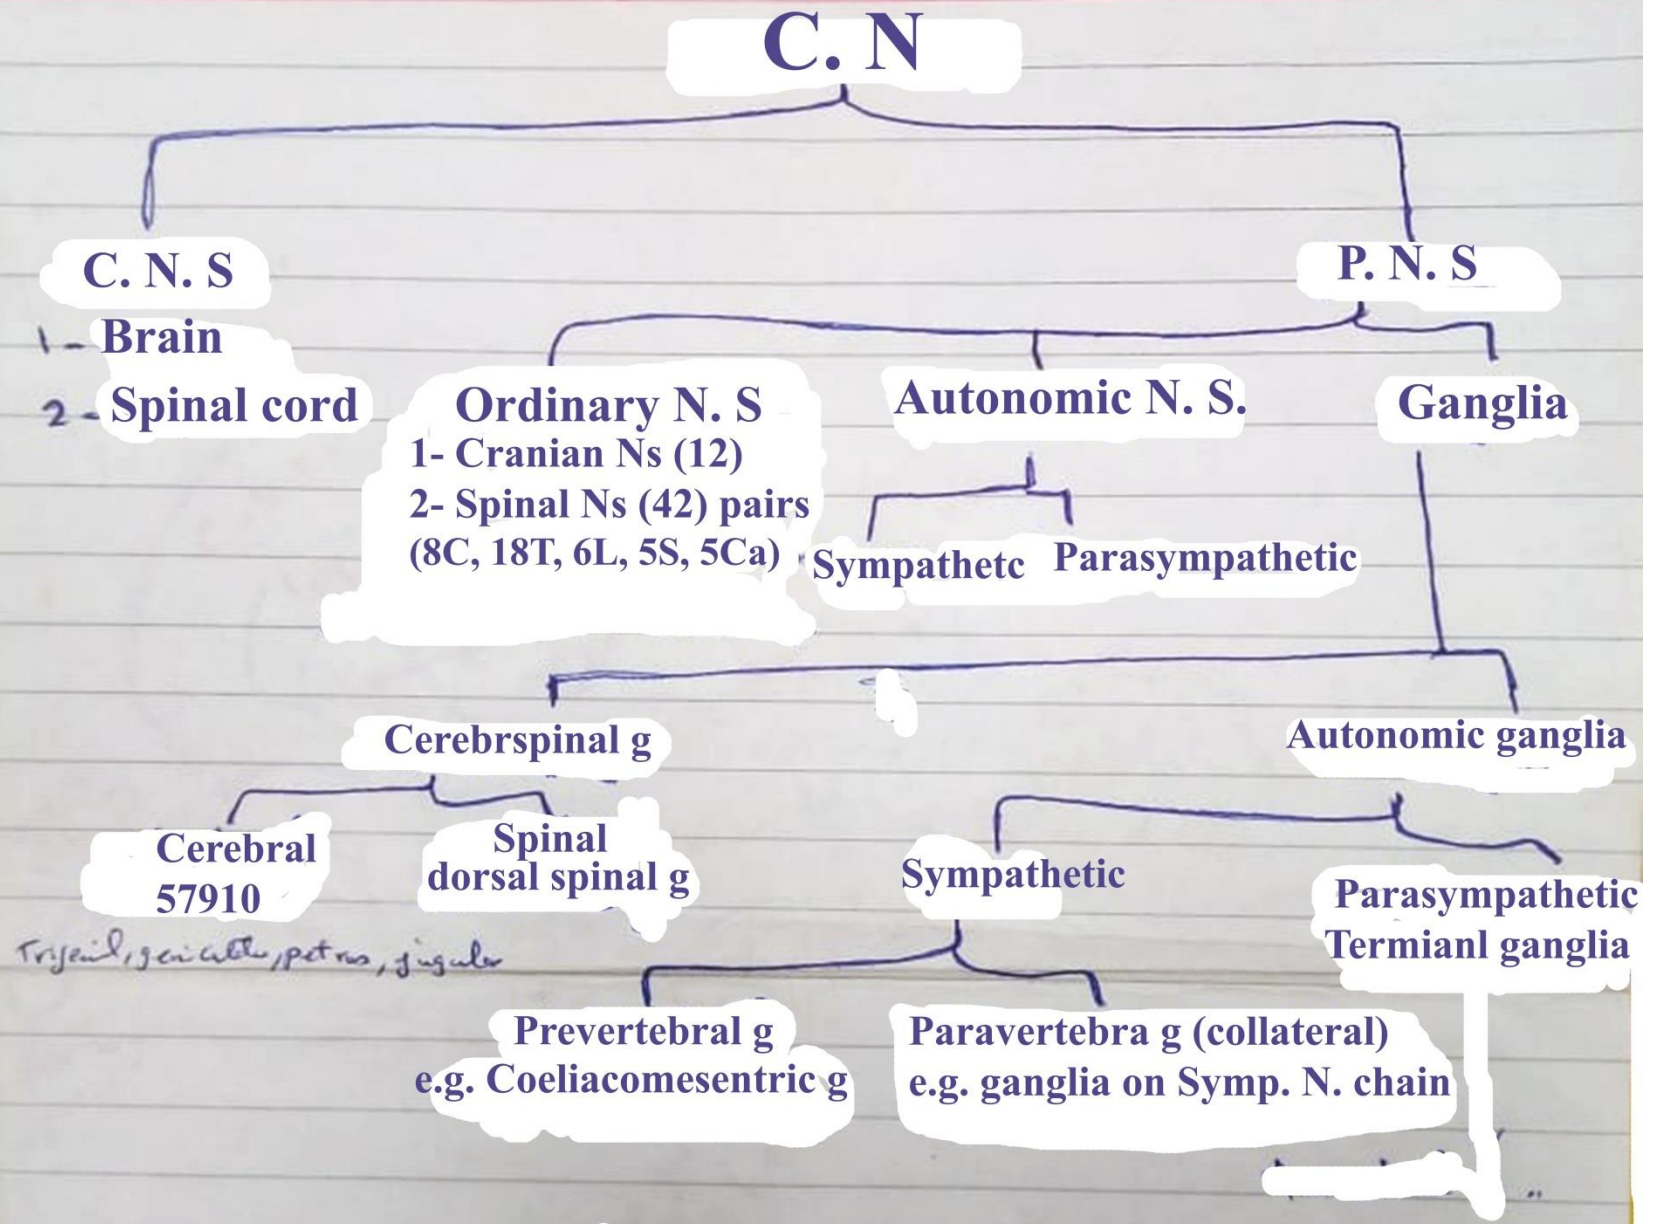 C. N
C. N. S
P. N. S
1- Brain
2- Spinal cord
Ordinary N. S
1- Cranian Ns (12)
2- Spinal Ns (42) pairs
(8C, 18T, 6L, 5S, 5Ca)
Autonomic N. S.
Sympathetc
Parasympathetic
Ganglia
Cerebrspinal g
Autonomic ganglia
Cerebral
57910
Spinal
dorsal spinal g
petros, jugular
Sympathetic
Parasympathetic
Termianl ganglia
Prevertebral g
e.g. Coeliacomesentric g
Paravertebra g (collateral)
e.g. ganglia on Symp. N. chain